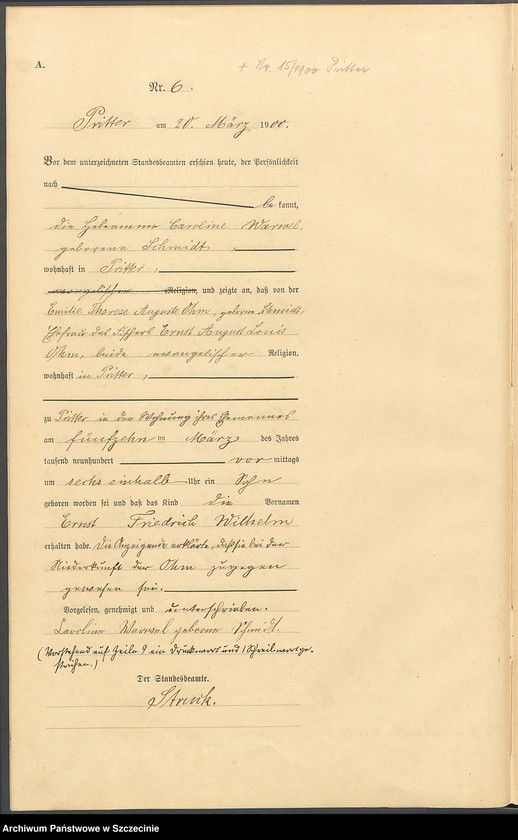 A.
+ Nr. 15/1900 Pritter
Nr. 6.
Pritter am 20. März 1900.
Vor dem unterzeichneten Standesbeamten erschien heute, der Persönlichkeit
nach
bekannt,
die Hebeamme Caroline Warwel,
geborene Schmidt,
wohnhaft in Pritter,
evangelischer Religion, und zeigte an, daß von der
Emilie Therese Auguste Ohm, geborene Schmidt,
Ehefrau des Fischers Ernst August Louis
Ohm, beide evangelischer Religion,
wohnhaft in Pritter,
zu Pritter in der Wohnung ihres Ehemannes
am fünfzehnten März des Jahres
tausend neunhundert vormittags
um sechs einhalb Uhr ein Sohn
geboren worden sei und daß das Kind die Vornamen
Ernst Friedrich Wilhelm
erhalten habe. Die Anzeigende erklärte, daß sie bei der
Niederkunft der Ohm zugegen
gewesen sei.
Vorgelesen, genehmigt und unterschrieben.
Caroline Warwel geborene Schmidt.
(Vorstehend auf Zeile 9 ein Druckwort und 1 Schreibwort ge-
strichen.)
Der Standesbeamte.
Archiwum Państwowe w Szczecinie